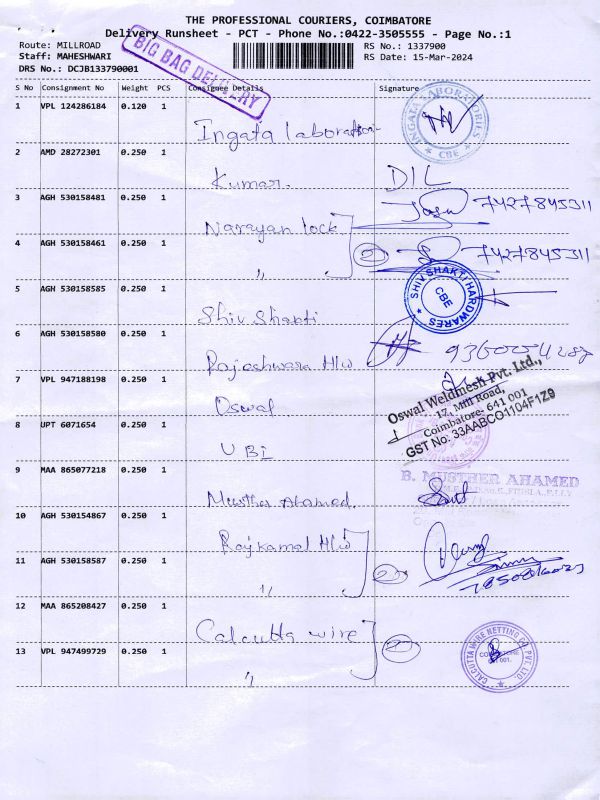 THE PROFESSIONAL COURIERS, COIMBATORE
Delivery Runsheet - PCT - Phone No.:0422-3505555 - Page No.:1
Route: MILLROAD
RS No.: 1337900
Staff: MAHESHWARI
RS Date: 15-Mar-2024
DRS No.: DCJB133790001
BIG BAG DELIVERY
S No Consignment No Weight PCS Consignee Details Signature
1 VPL 124286184 0.120 1
Ingata laboration
INGATA LABORATORIES
CBE
2 AMD 28272301 0.250 1
Kumar. DIL
3 AGH 530158481 0.250 1
Narayan lock 7427845311
4 AGH 530158461 0.250 1
" 2 7427845311
5 AGH 530158585 0.250 1
Shiv Shakti
SHIV SHAKTI HARDWARES
CBE
6 AGH 530158580 0.250 1
Rajeshwara H/w
7 VPL 947188198 0.250 1
Oswal
Oswal Weldmesh Pvt. Ltd.,
17, Mill Road,
Coimbatore- 641 001
GST No: 33AABCO1104F1Z9
8 UPT 6071654 0.250 1
UBI
9 MAA 865077218 0.250 1
Musthar Ahamed.
B. MUSTHER AHAMED
10 AGH 530154867 0.250 1
Rajkamal H/w
11 AGH 530158587 0.250 1
" 2
12 MAA 865208427 0.250 1
Calcutta wire
13 VPL 947499729 0.250 1
" 2
CALCUTTA WIRE NETTING CO. PVT. LTD.
COIMBATORE
641 001.